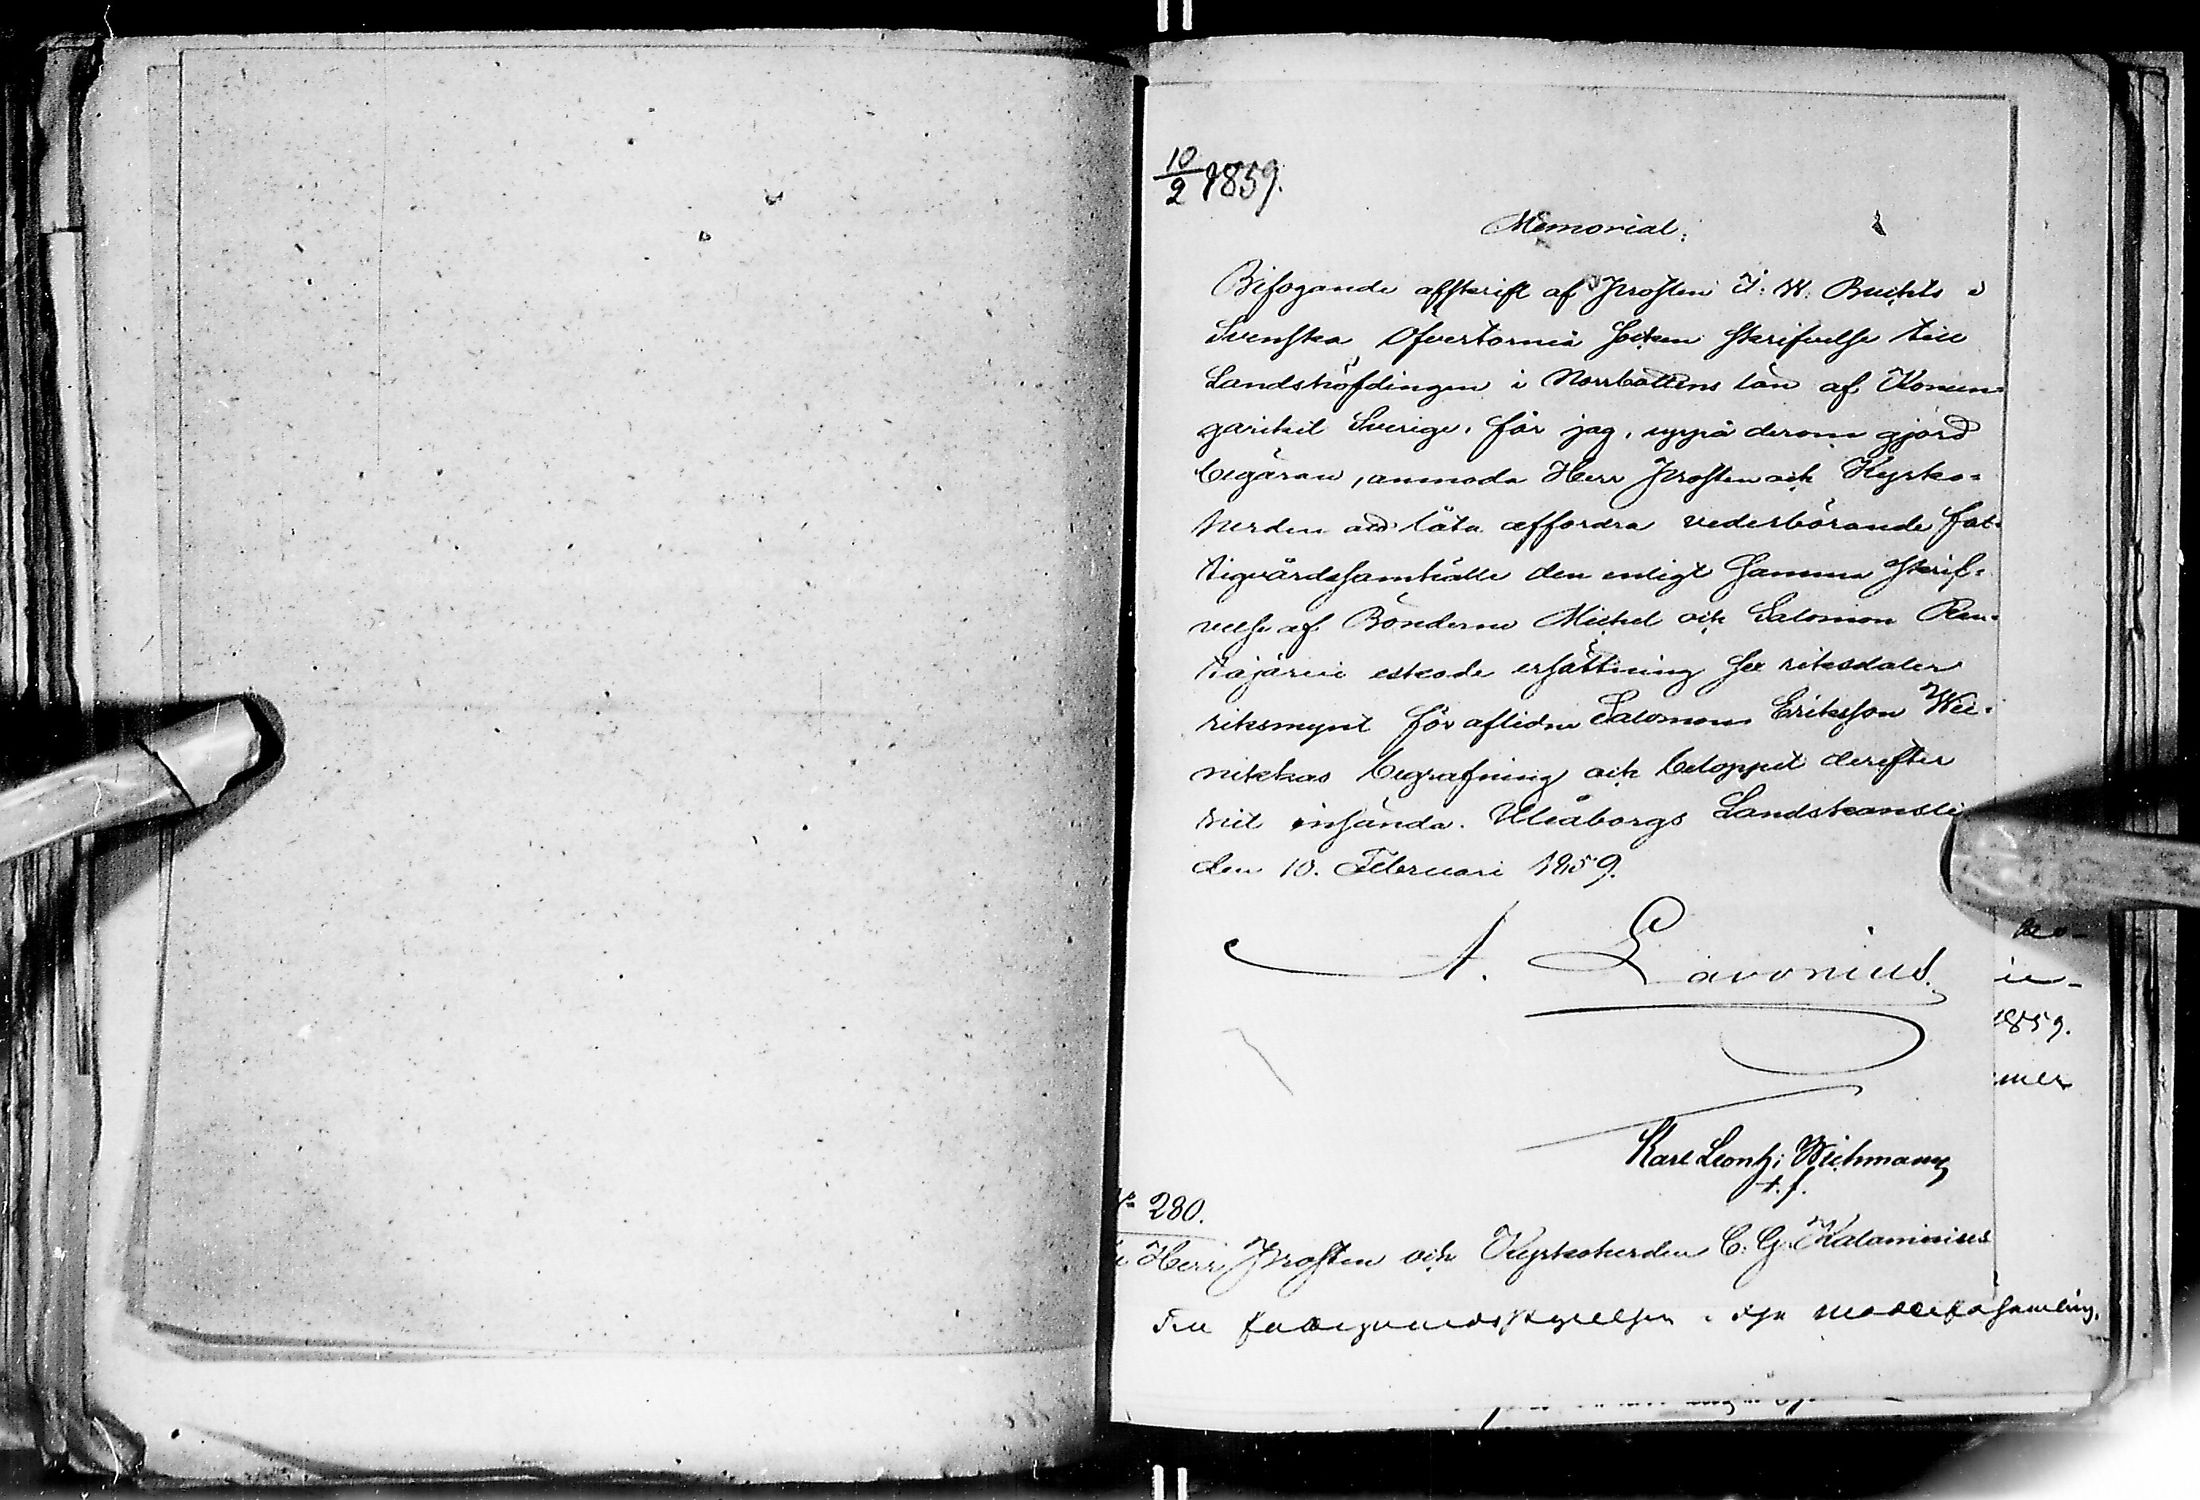 10/2 1859.
Memorial:
Bifogande afskrift af Prosten J. W. Buchts i
Svenska Öfvertorneå socken skrifvelse till
Landshöfdingen i Norrbottens län af Konun=
gariket Sverige, får jag, uppå derom gjord
begäran, anmoda Herr Prosten och Kyrko=
herden att låta affordra vederbörande fat=
tigvårdssamhälle den enligt samma skrif=
velse af Bönderne Michel och Salomon
äskade ersättning sex riksdaler
riksmynt för aflidne Salomon Eriksson Wei=
nikkas begrafning och beloppet derefter
hit insända. Uleåborgs Landskansli
den 10. Februari 1859.
A. Lavonius.
Karl Leontj: Wichmann
t. f.
No 280.
Herr Prosten och Kyrkoherden C. G. Kalamnius
Till fattigvårdsstyrelsen i församling.
1859.